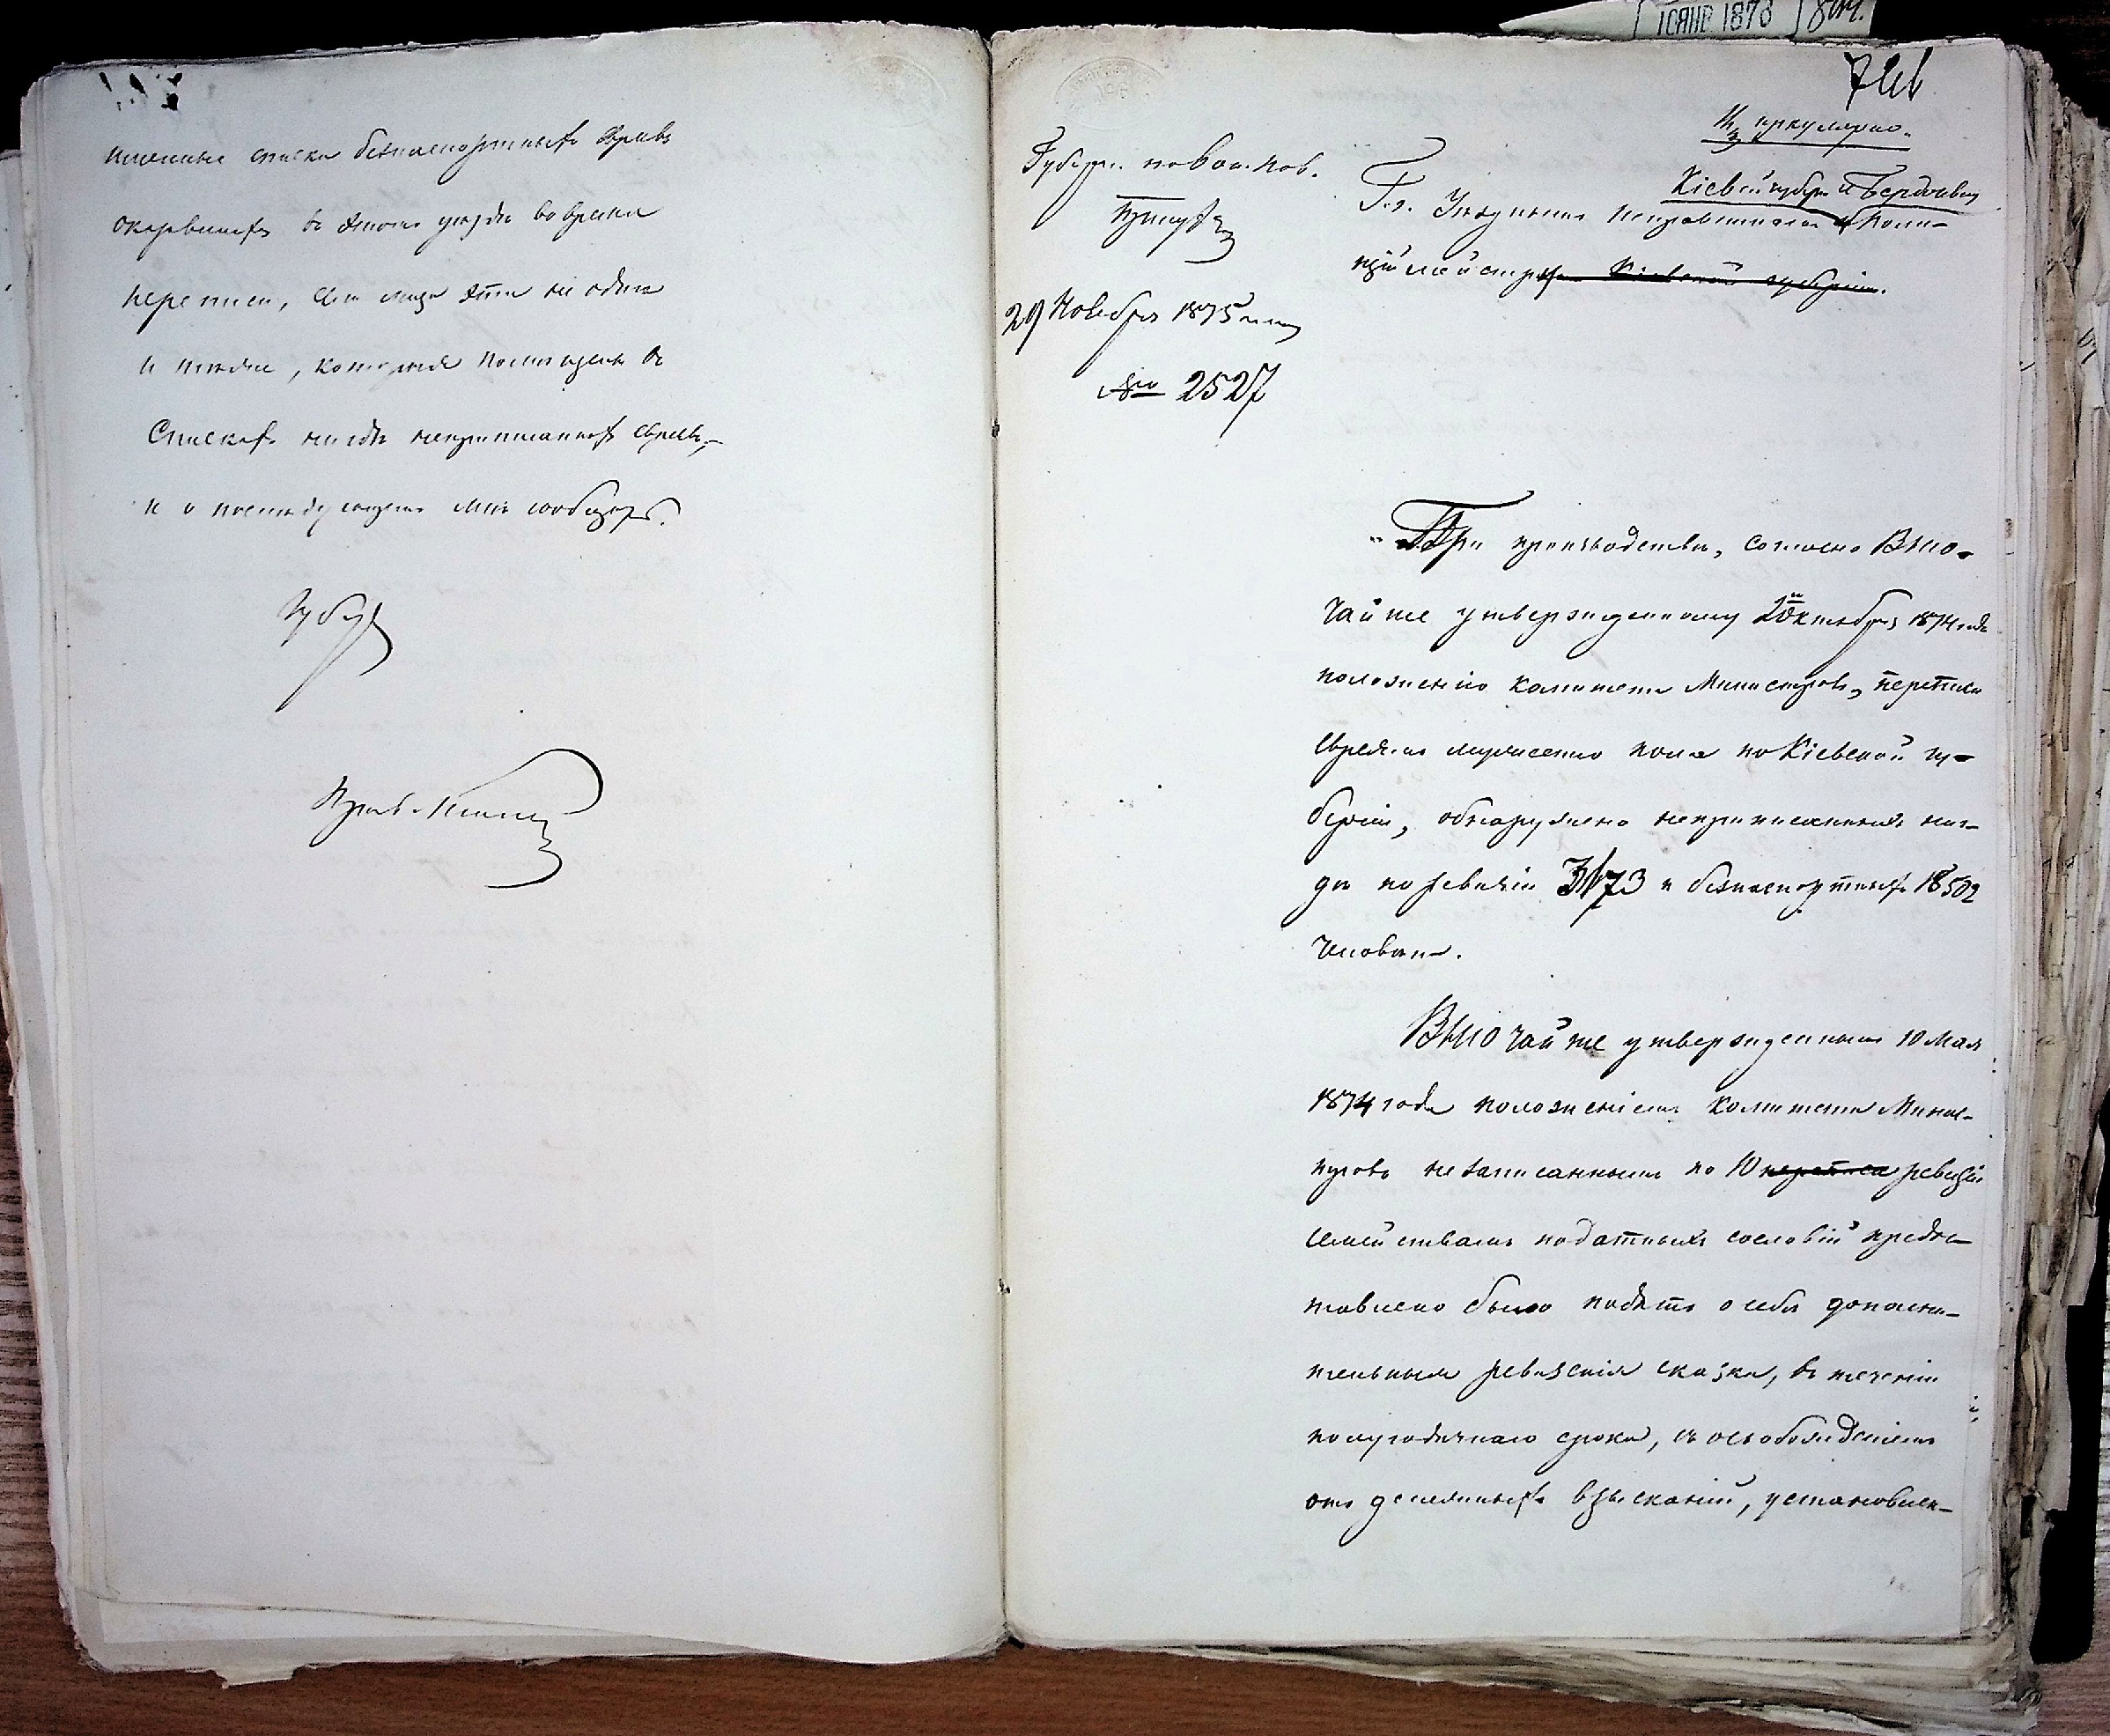 именные списки безпаспортныхъ Евреевъ
оказавшихся въ этомъ уездѣ во время
переписи, Если лица эти не одни
и тѣже, которыя помещены въ
Спискахъ нигдѣ неприписанныхъ евреевъ,–
и о последующемъ мнѣ сообщать.
Губер
Прав. Канц
10 ЯНВ. 1876
Циркулярно.
Губерн. по Воин. Пов.
Присутст
29 Ноября 1875
№ 2527
Кіевской губерн и Бердичевск
Г.г. Уезднымъ Исправникамъ и Поли-
цiймейстеру Кіевской губерніи.
При производствѣ, согласно Высо-
чайше утвержденному 2 Октября 1874 года
положенію Комитета Министровъ, переписи
евреямъ мужескаго пола по Кіевской гу-
берніи, обнаружено неприписанныхъ ниг-
дѣ по ревизіи 3173 и безпаспортныхъ 18502
человека.
Высочайше утвержденнымъ 10 Мая
1874 года положеніемъ Комитета Минис-
тровъ незаписаннымъ по 10 переписи ревизіи
семействамъ податныхъ сословій предос-
тавлено было подать о себѣ дополни-
тельныя ревизскія сказки, въ теченіи
полугодичнаго срока, съ освобожденіемъ
отъ денежныхъ взысканій, установлен-